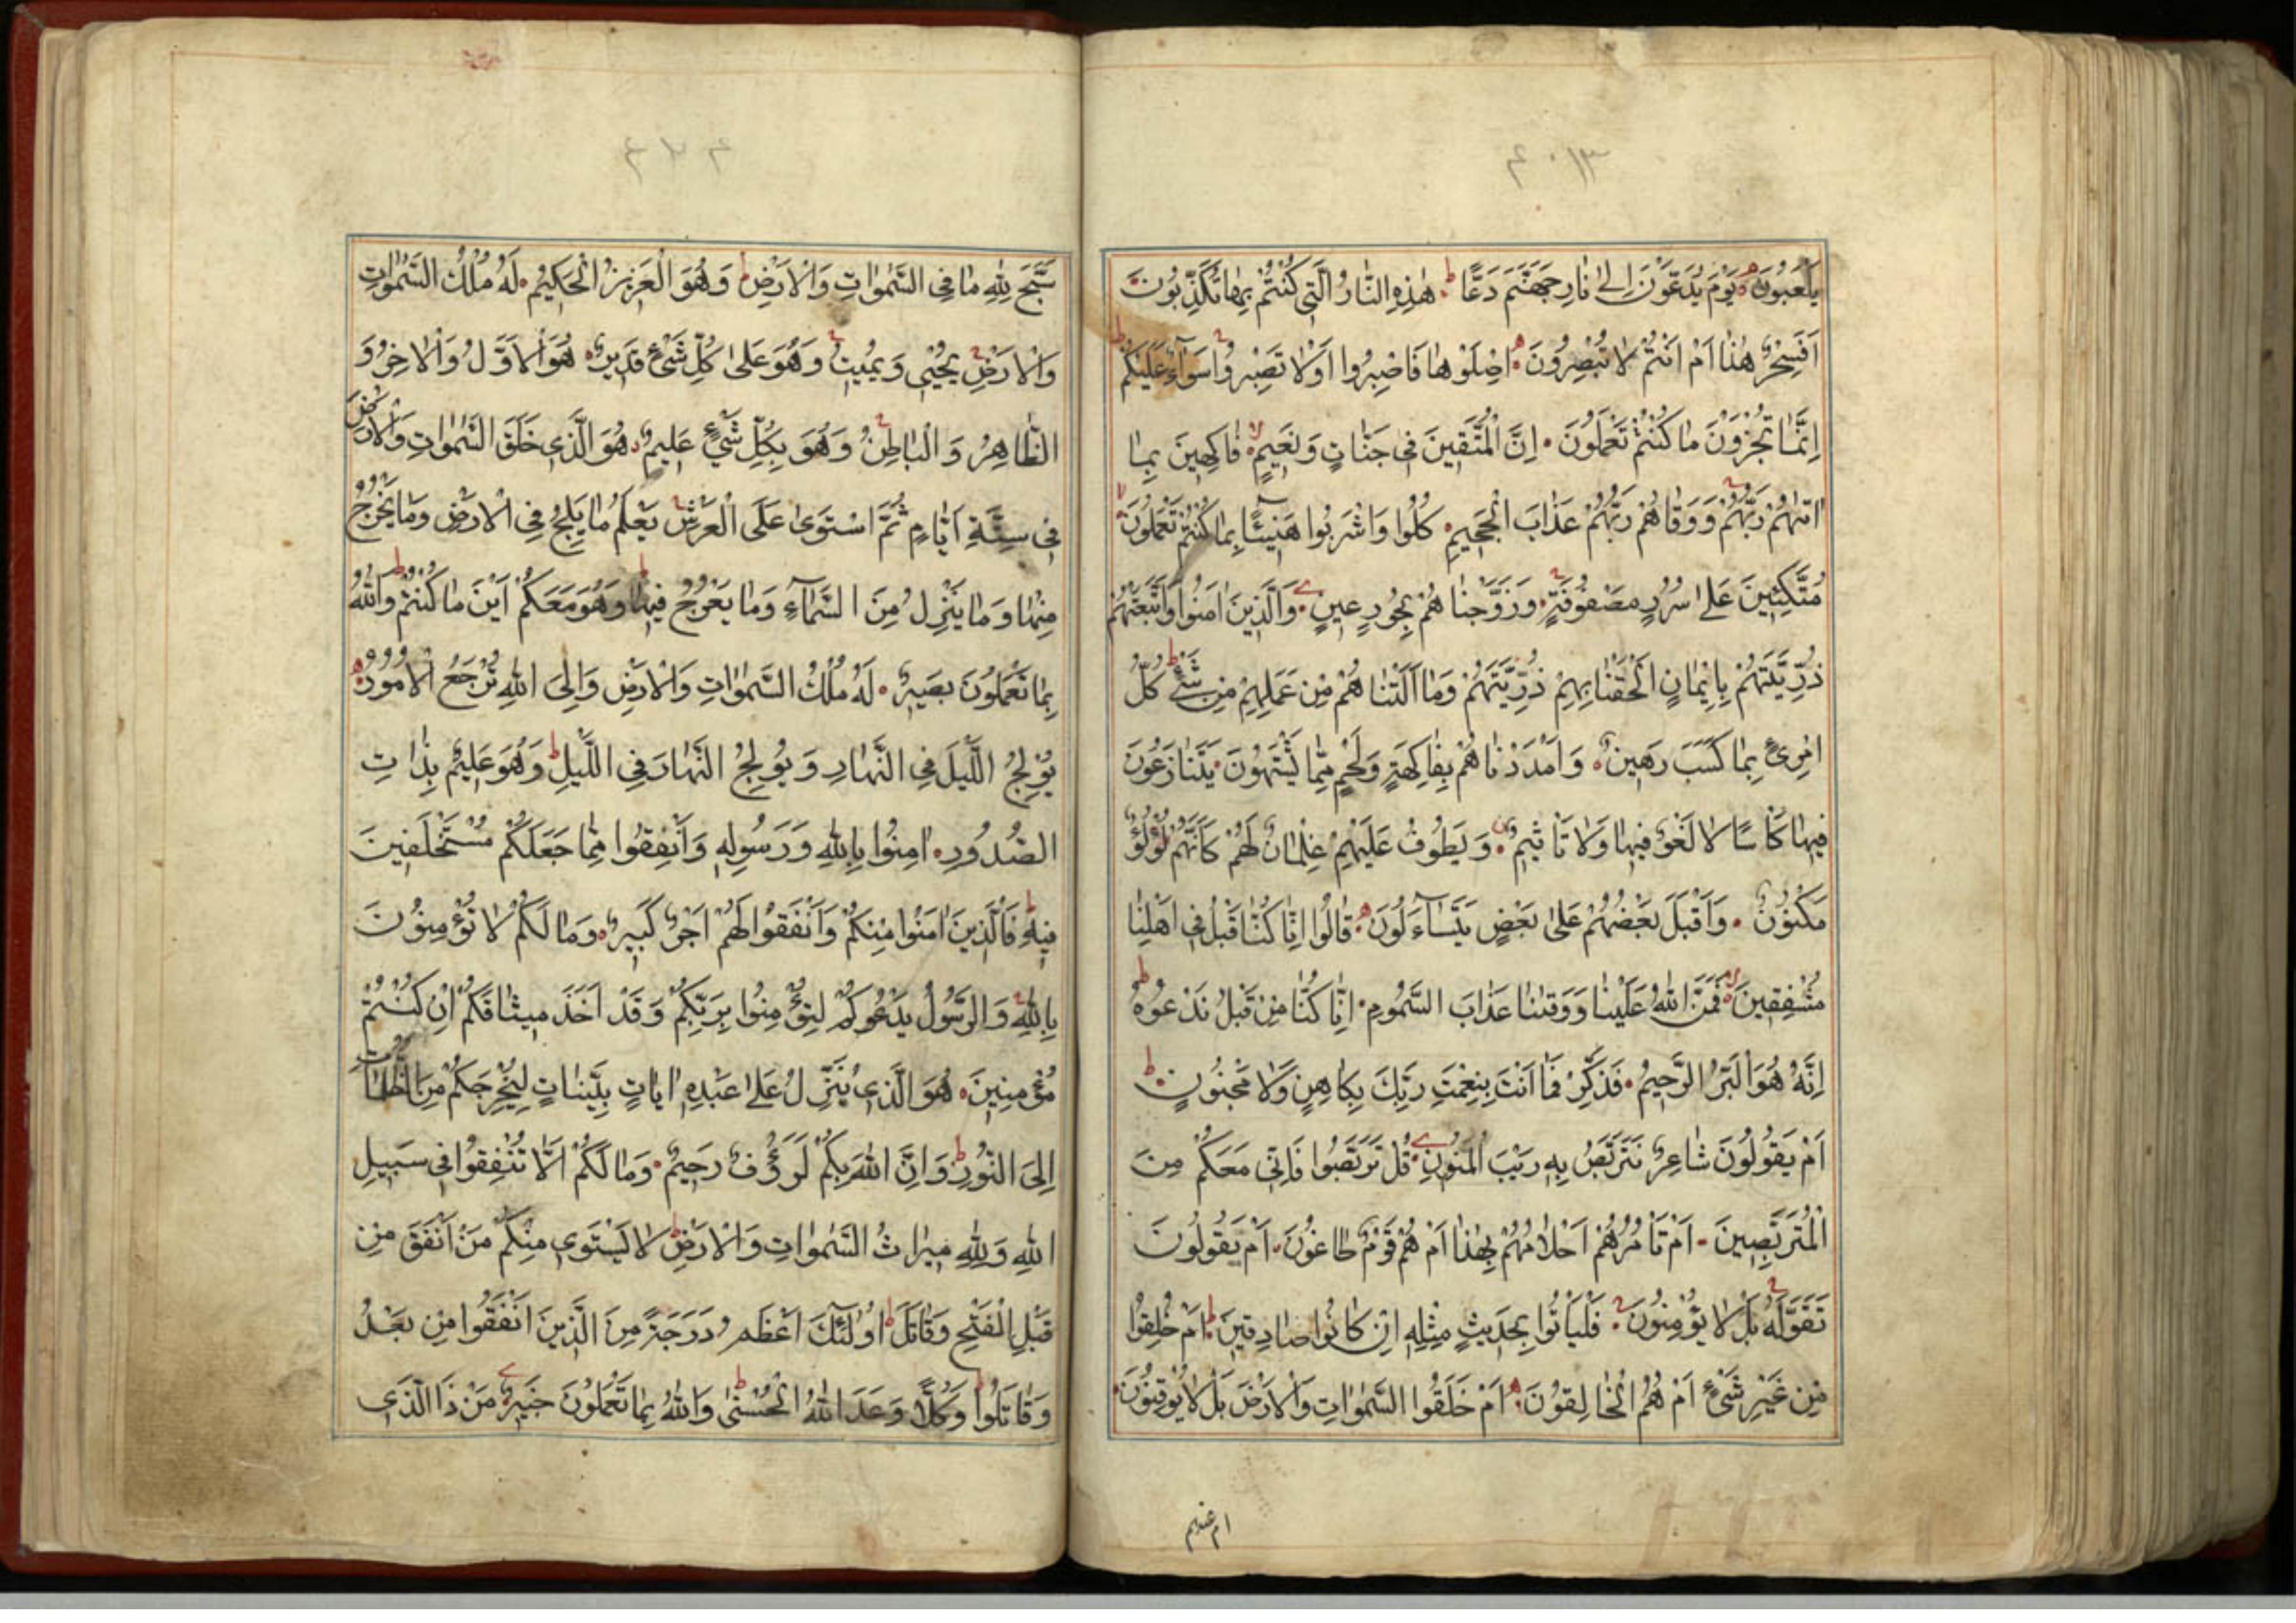 ٤٠١٣
يَلْعَبُونَ يَوْمَ يُدَعُّونَ إِلىٰ نَارِ جَهَنَّمَ دَعًّا هٰذِهِ النَّارُ الَّتِي كُنْتُمْ بِهَا تُكَذِّبُونَ
اَفَسِحْرٌ هٰذَا اَمْ اَنْتُمْ لَا تُبْصِرُونَ اِصْلَوْهَا فَاصْبِرُوا اَوْلَا تَصْبِرُوا سَوَآءٌ عَلَيْكُمْ
اِنَّمَا تُجْزَوْنَ مَا كُنْتُمْ تَعْمَلُونَ اِنَّ الْمُتَّقِينَ فِي جَنَّاتٍ وَنَعِيمٍ فَاكِهِينَ بِمَا
اٰتٰهُمْ رَبُّهُمْ وَوَقَاهُمْ رَبُّهُمْ عَذَابَ الْجَحِيمِ كُلُوا وَاشْرَبُوا هَنِيئًا بِمَا كُنْتُمْ تَعْمَلُونَ
مُتَّكِئِينَ عَلىٰ سُرُرٍ مَصْفُوفَةٍ وَزَوَّجْنَاهُمْ بِحُورٍ عِينٍ وَالَّذِينَ اٰمَنُوا وَاتَّبَعَتْهُمْ
ذُرِّيَّتُهُمْ بِاِيْمَانٍ اَلْحَقْنَا بِهِمْ ذُرِّيَّتَهُمْ وَمَا اَلَتْنَاهُمْ مِنْ عَمَلِهِمْ مِنْ شَيْءٍ كُلُّ
امْرِئٍ بِمَا كَسَبَ رَهِينٌ وَاَمْدَدْنَاهُمْ بِفَاكِهَةٍ وَلَحْمٍ مِمَّا يَشْتَهُونَ يَتَنَازَعُونَ
فِيهَا كَأْسًا لَا لَغْوٌ فِيهَا وَلَا تَأْثِيمٌ وَيَطُوفُ عَلَيْهِمْ غِلْمَانٌ لَهُمْ كَاَنَّهُمْ لُؤْلُؤٌ
مَكْنُونٌ وَاَقْبَلَ بَعْضُهُمْ عَلىٰ بَعْضٍ يَتَسَآءَلُونَ قَالُوا اِنَّا كُنَّا قَبْلُ فِي اَهْلِنَا
مُشْفِقِينَ فَمَنَّ اللّٰهُ عَلَيْنَا وَوَقٰنَا عَذَابَ السَّمُومِ اِنَّا كُنَّا مِنْ قَبْلُ نَدْعُوهُ
اِنَّهُ هُوَ الْبَرُّ الرَّحِيمُ فَذَكِّرْ فَمَا اَنْتَ بِنِعْمَتِ رَبِّكَ بِكَاهِنٍ وَلَا مَجْنُونٍ
اَمْ يَقُولُونَ شَاعِرٌ نَتَرَبَّصُ بِهِ رَيْبَ الْمَنُونِ قُلْ تَرَبَّصُوا فَاِنِّي مَعَكُمْ مِنَ
الْمُتَرَبِّصِينَ اَمْ تَأْمُرُهُمْ اَحْلَامُهُمْ بِهٰذَا اَمْ هُمْ قَوْمٌ طَاغُونَ اَمْ يَقُولُونَ
تَقَوَّلَهُ بَلْ لَا يُؤْمِنُونَ فَلْيَأْتُوا بِحَدِيثٍ مِثْلِهِ اِنْ كَانُوا صَادِقِينَ اَمْ خُلِقُوا
مِنْ غَيْرِ شَيْءٍ اَمْ هُمُ الْخَالِقُونَ اَمْ خَلَقُوا السَّمٰوَاتِ وَالْاَرْضَ بَلْ لَا يُوقِنُونَ
ام عندهم
سَبَّحَ لِلّٰهِ مَا فِي السَّمٰوَاتِ وَالْاَرْضِ وَهُوَ الْعَزِيزُ الْحَكِيمُ لَهُ مُلْكُ السَّمٰوَاتِ
وَالْاَرْضِ يُحْيِي وَيُمِيتُ وَهُوَ عَلىٰ كُلِّ شَيْءٍ قَدِيرٌ هُوَ الْاَوَّلُ وَالْاٰخِرُ وَ
الظَّاهِرُ وَالْبَاطِنُ وَهُوَ بِكُلِّ شَيْءٍ عَلِيمٌ هُوَ الَّذِي خَلَقَ السَّمٰوَاتِ وَالْاَرْضَ
فِي سِتَّةِ اَيَّامٍ ثُمَّ اسْتَوىٰ عَلَى الْعَرْشِ يَعْلَمُ مَا يَلِجُ فِي الْاَرْضِ وَمَا يَخْرُجُ
مِنْهَا وَمَا يَنْزِلُ مِنَ السَّمَآءِ وَمَا يَعْرُجُ فِيهَا وَهُوَ مَعَكُمْ اَيْنَ مَا كُنْتُمْ وَاللّٰهُ
بِمَا تَعْمَلُونَ بَصِيرٌ لَهُ مُلْكُ السَّمٰوَاتِ وَالْاَرْضِ وَاِلَى اللّٰهِ تُرْجَعُ الْاُمُورُ
يُوْلِجُ اللَّيْلَ فِي النَّهَارِ وَيُولِجُ النَّهَارَ فِي اللَّيْلِ وَهُوَ عَلِيمٌ بِذَاتِ
الصُّدُورِ اٰمِنُوا بِاللّٰهِ وَرَسُولِهِ وَاَنْفِقُوا مِمَّا جَعَلَكُمْ مُسْتَخْلَفِينَ
فِيهِ فَالَّذِينَ اٰمَنُوا مِنْكُمْ وَاَنْفَقُوا لَهُمْ اَجْرٌ كَبِيرٌ وَمَا لَكُمْ لَا تُؤْمِنُونَ
بِاللّٰهِ وَالرَّسُولُ يَدْعُوكُمْ لِتُؤْمِنُوا بِرَبِّكُمْ وَقَدْ اَخَذَ مِيثَاقَكُمْ اِنْ كُنْتُمْ
مُؤْمِنِينَ هُوَ الَّذِي يُنَزِّلُ عَلىٰ عَبْدِهِ اٰيَاتٍ بَيِّنَاتٍ لِيُخْرِجَكُمْ مِنَ الظُّلُمَاتِ
اِلَى النُّورِ وَاِنَّ اللّٰهَ بِكُمْ لَرَؤُفٌ رَحِيمٌ وَمَا لَكُمْ اَلَّا تُنْفِقُوا فِي سَبِيلِ
اللّٰهِ وَلِلّٰهِ مِيرَاثُ السَّمٰوَاتِ وَالْاَرْضِ لَا يَسْتَوِي مِنْكُمْ مَنْ اَنْفَقَ مِنْ
قَبْلِ الْفَتْحِ وَقَاتَلَ اُولٰئِكَ اَعْظَمُ دَرَجَةً مِنَ الَّذِينَ اَنْفَقُوا مِنْ بَعْدُ
وَقَاتَلُوا وَكُلًّا وَعَدَ اللّٰهُ الْحُسْنىٰ وَاللّٰهُ بِمَا تَعْمَلُونَ خَبِيرٌ مَنْ ذَا الَّذِي